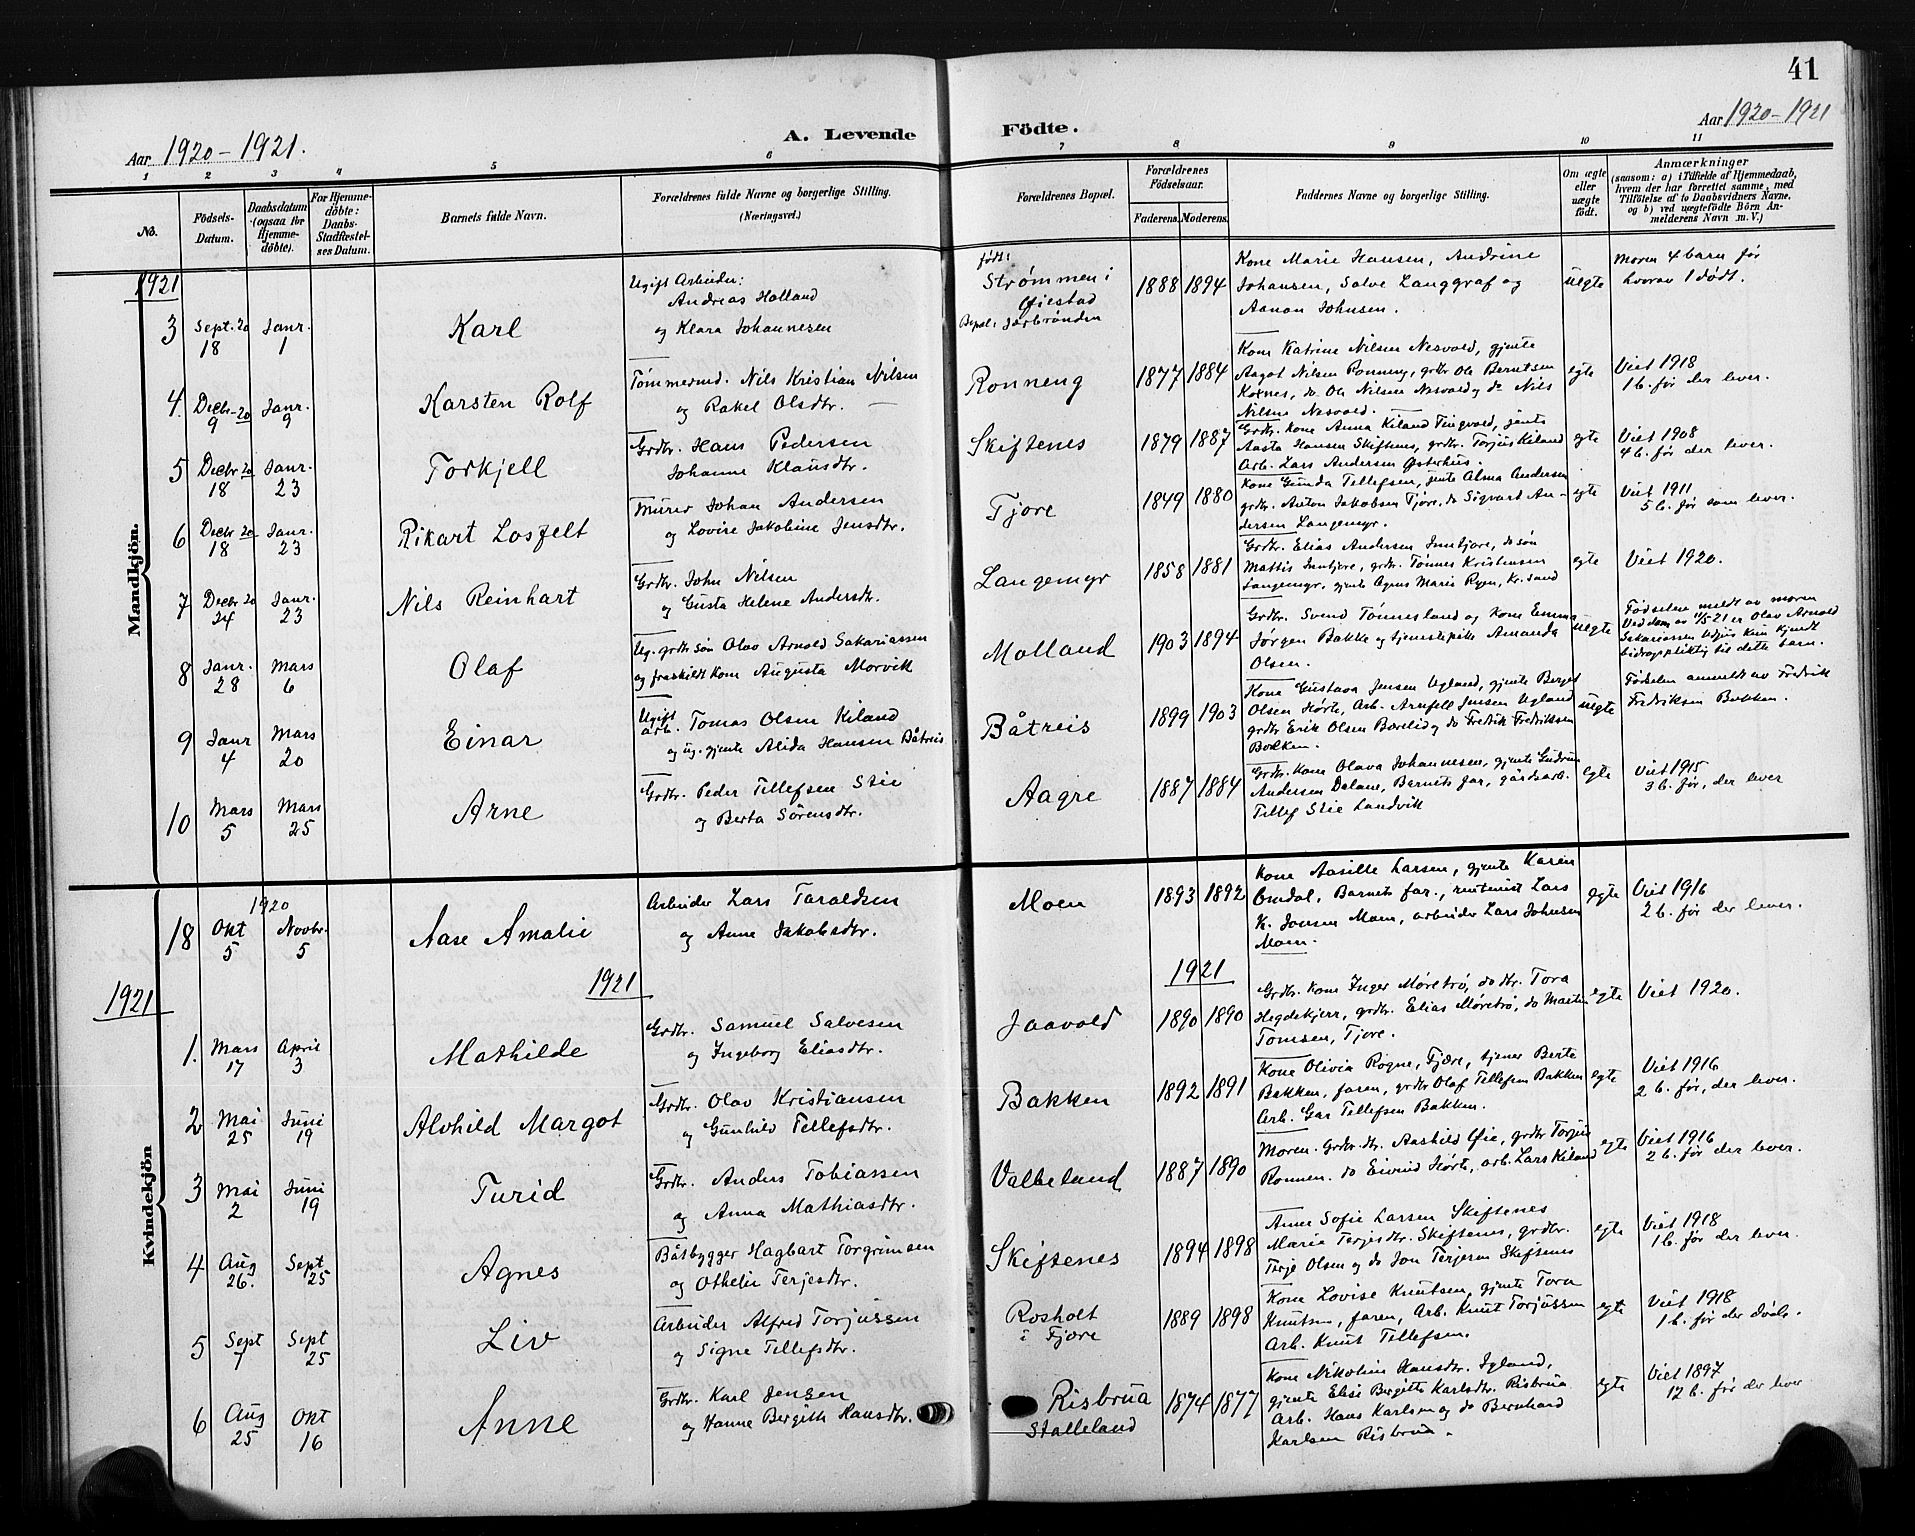 41
Aar 1920-1921.
A. Levende Födte.
Aar 1920-1921
1 2 3 4 5 6 7 8 9 10 11
No.
Födsels-Datum.
Daabsdatum (ogsaa for Hjemmedöbte).
For Hjemmedöbte: Daabs-Stadfæstelses Datum.
Barnets fulde Navn.
Forældrenes fulde Navne og borgerlige Stilling.
(Næringsvei.)
Forældrenes Bopæl.
Forældrenes Födselsaar.
Faderens. Moderens.
Faddernes Navne og borgerlige Stilling.
Om ægte eller uægte födt.
Anmærkninger
(saasom: a) i Tilfælde af Hjemmedaab, hvem der har forrettet samme, med Tilföielse af to Daabsvidners Navne, og b) ved uægtefödte Börn Anmelderens Navn m. V.)
Mandkjön.
1921
3 Sept. 20 18 Janr. 1 Karl
Ugift Arbeider:
Andreas Holland
og Klara Johannesen
født:
Strømmen i
Øiestad
Bopæl: Jorbrønden
1888 1894
Kone Marie Hansen, Andrine
Johansen, Salve Langgraf og
Aanon Johnsen.
uegte
Moren 4 barn før
hvorav 1 dødt.
4. Decbr-20 9 Janr. 9 Karsten Rolf
Tømmermd. Nils Kristian Nilsen
og Rakel Olsdtr.
Ronneng
1877 1884
Kone Katrine Nilsen Nesvold, gjente
Aagot Nilsen Ronneng, grdbr Ole Berntsen
do. Ole Nilsen Nesvold og do Nils
Nilsen Nesvold.
egte
Viet 1918
1 b. før der lever.
5 Decbr 20 18 Janr. 23 Torkjell
Grdbr. Hans Pedersen
Johanne Klausdtr.
Skiftenes
1879 1887
Grdbr. kone Anna Kiland Tingvold, gjente
Aasta Hansen Skiftenes, grdbr. Torjus Kiland
Arb. Lars Andersen Østerhus.
egte
Viet 1908
4 b. før der lever.
6 Decbr 20 18 Janr. 23 Rikart Losfelt
Murer Johan Andersen
og Lovise Jakobine Jensdtr.
Tjore
1849 1880
Kone Gunda Tellefsen, gjente Alma Andersen
grdbr. Anton Jakobsen Tjore, do Sigvart An-
dersen Langemyr.
egte
Viet 1911
5 b. før som lever.
7 Decbr 20 24 Janr. 23 Nils Reinhart
Grdbr. John Nilsen
og Gusta Helene Andersdtr.
Langemyr
1858 1881
Grdbr. Elias Andersen Inntjore, do søn
Mattis Inntjore, grdbr. Tønnes Kristensen
Langemyr, gjente Agnes Marie Ryen, Kr. sand
egte
Viet 1920.
8 Janr. 28 Mars 6 Olaf
Ug. grdbr søn Olav Arnold Sakariassen
og fraskildt kone Augusta Morvik
Molland
1903 1894
Grdbr. Svend Tønnesland og kone Emma
Jørgen Bakke og tjenestepike Amanda
Olsen.
uegte
Fødselen meldt av moren
Ved dom av 11/5-21 er Olav Arnold
Sakariassen kun kjendt
bidragspliktig til dette barn.
9 Janr 4 Mars 20 Einar
Ugift
arb. Tomas Olsen Kiland
og ug. gjente Alida Hansen Båtreis
Båtreis
1899 1903
Kone Gustava Jensen Ugland, gjente Berget
Olsen Hørte, Arb. Arnfell Jensen Ugland
grdbr Erik Olsen Borelid og do Fredrik Fredriksen
Bokken.
uegte
Fødselen anmeldt av Fredrik
Fredriksen Bokken.
10 Mars 5 Mars 25 Arne
Grdbr. Peder Tellefsen Stie
og Berta Sørensdtr.
Aagre
1887 1884
Grdbr. kone Olava Johannesen, gjente Gudrun
Andersen Dalane, Barnets far, gårdsarb.
Tellef Stie Landvik
egte
Viet 1915
3 b. før, der lever
Kvindekjön
1920
18 Okt 5 Novbr. 5 Aase Amalie
Arbeider Lars Taraldsen
og Anne Jakobsdtr.
Moen
1893 1892
Kone Aasille Larsen, gjente Karen
Omdal, Barnets far., rentenist Lars
K. Jonsen Moen, arbeider Lars Johnsen
Moen.
egte
Viet 1916
2 b. før der lever.
1921 1921 1921
1. Mars 17 April 3 Mathilde
Grdbr. Samuel Salvesen
og Ingeborg Eliasdtr.
Jaavold
1890 1890
Grdbr. kone Inger Møretrø, do dtr. Tora
Hegdekjerr, grdbr. Elias Møretrø, do Martin
Tomsen, Tjore.
egte
Viet 1920.
2 Mai 25 Juni 19 Alvhild Margot
Grdbr. Olav Kristiansen
og Gunhild Tellefsdtr.
Bakken
1892 1891
Kone Olivia Rogne, Fjære, tjener Berte
Bakken, faren, grdbr Olaf Tellefsen Bakken
Arb. Gar Tellefsen Bakken.
egte
Viet 1916
2 b. før, der lever.
3 Mai 2 Juni 19 Turid
Grdbr. Anders Tobiassen
og Anna Mathiasdtr.
Valbeland
1887 1890
Moren. Grdbr. dtr. Aashild Øie, grdbr Torjus
Ronnen. do Eivind Hørte, arb. Lars Kiland
egte
Viet 1916
2 b. før der lever.
4 Aug 26. Sept 25 Agnes
Båtbygger Hagbart Torgrimsen
og Othelie Terjesdtr.
Skiftenes
1894 1898
Anne Sofie Larsen Skiftenes
Maria Terjesdtr. Skiftenes, grdbr.
Terje Olsen og do Jon Terjesen Skiftenes
egte
Viet 1918
1 b. før der lever.
5 Sept 7 Sept 25 Liv
Arbeider Alfred Torjussen
og Signe Tellefsdtr.
Rosholt
i Fjære
1889 1898
Kone Lovise Knutsen, gjente Tora
Knutsen, faren, Arb. Knut Torjussen
Arb. Knut Tellefsen.
egte
Viet 1918
1 b. før der døde.
6 Aug 25 Okt 16 Anne
Grdbr. Karl Jensen
og Hanne Bergitte Hansdtr.
Risbrua
Stalleland
1874 1877
Kone Nikoline Hansdtr. Igland,
gjente Elise Bergitte Karlsdtr. Risbrua
Arb. Hans Karlsen og do Bernhard
Karlsen Risbrua.
egte
Viet 1897
12 b. før der lever